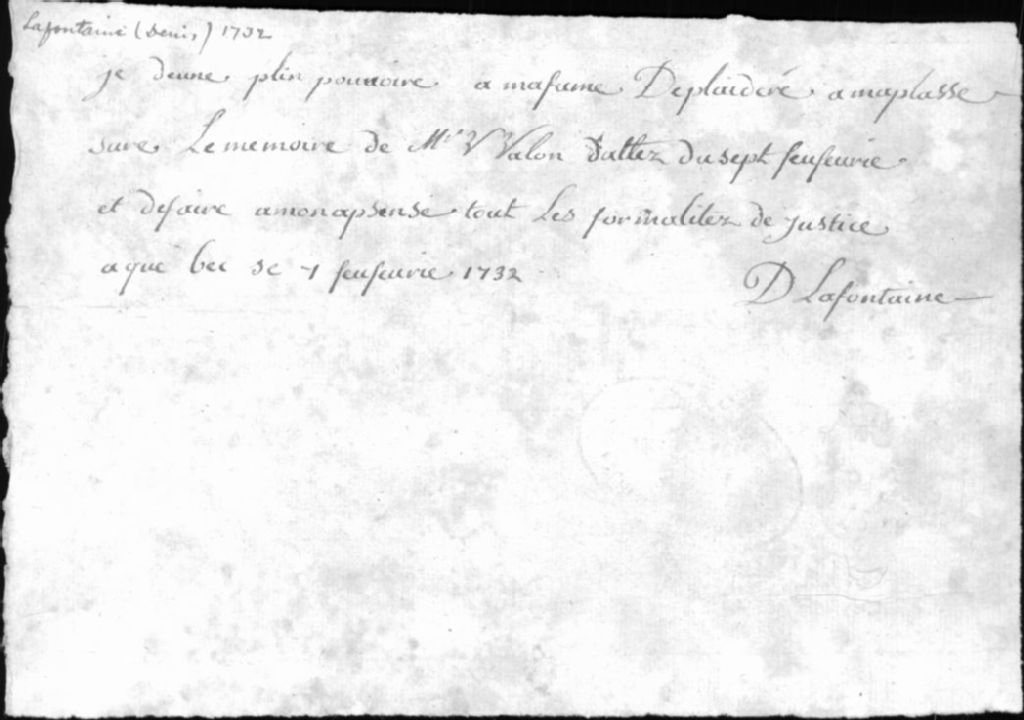 Lafontaine (Denis) 1732
je donne plin pouvoire a mafame Deplaideré amaplasse
sure Le memoire de Mr Valon dattez du sept feufeurie
et defaire amonapsense tout Les formalitez de Justice
a que bec se 7 feufeurie 1732
D Lafontaine